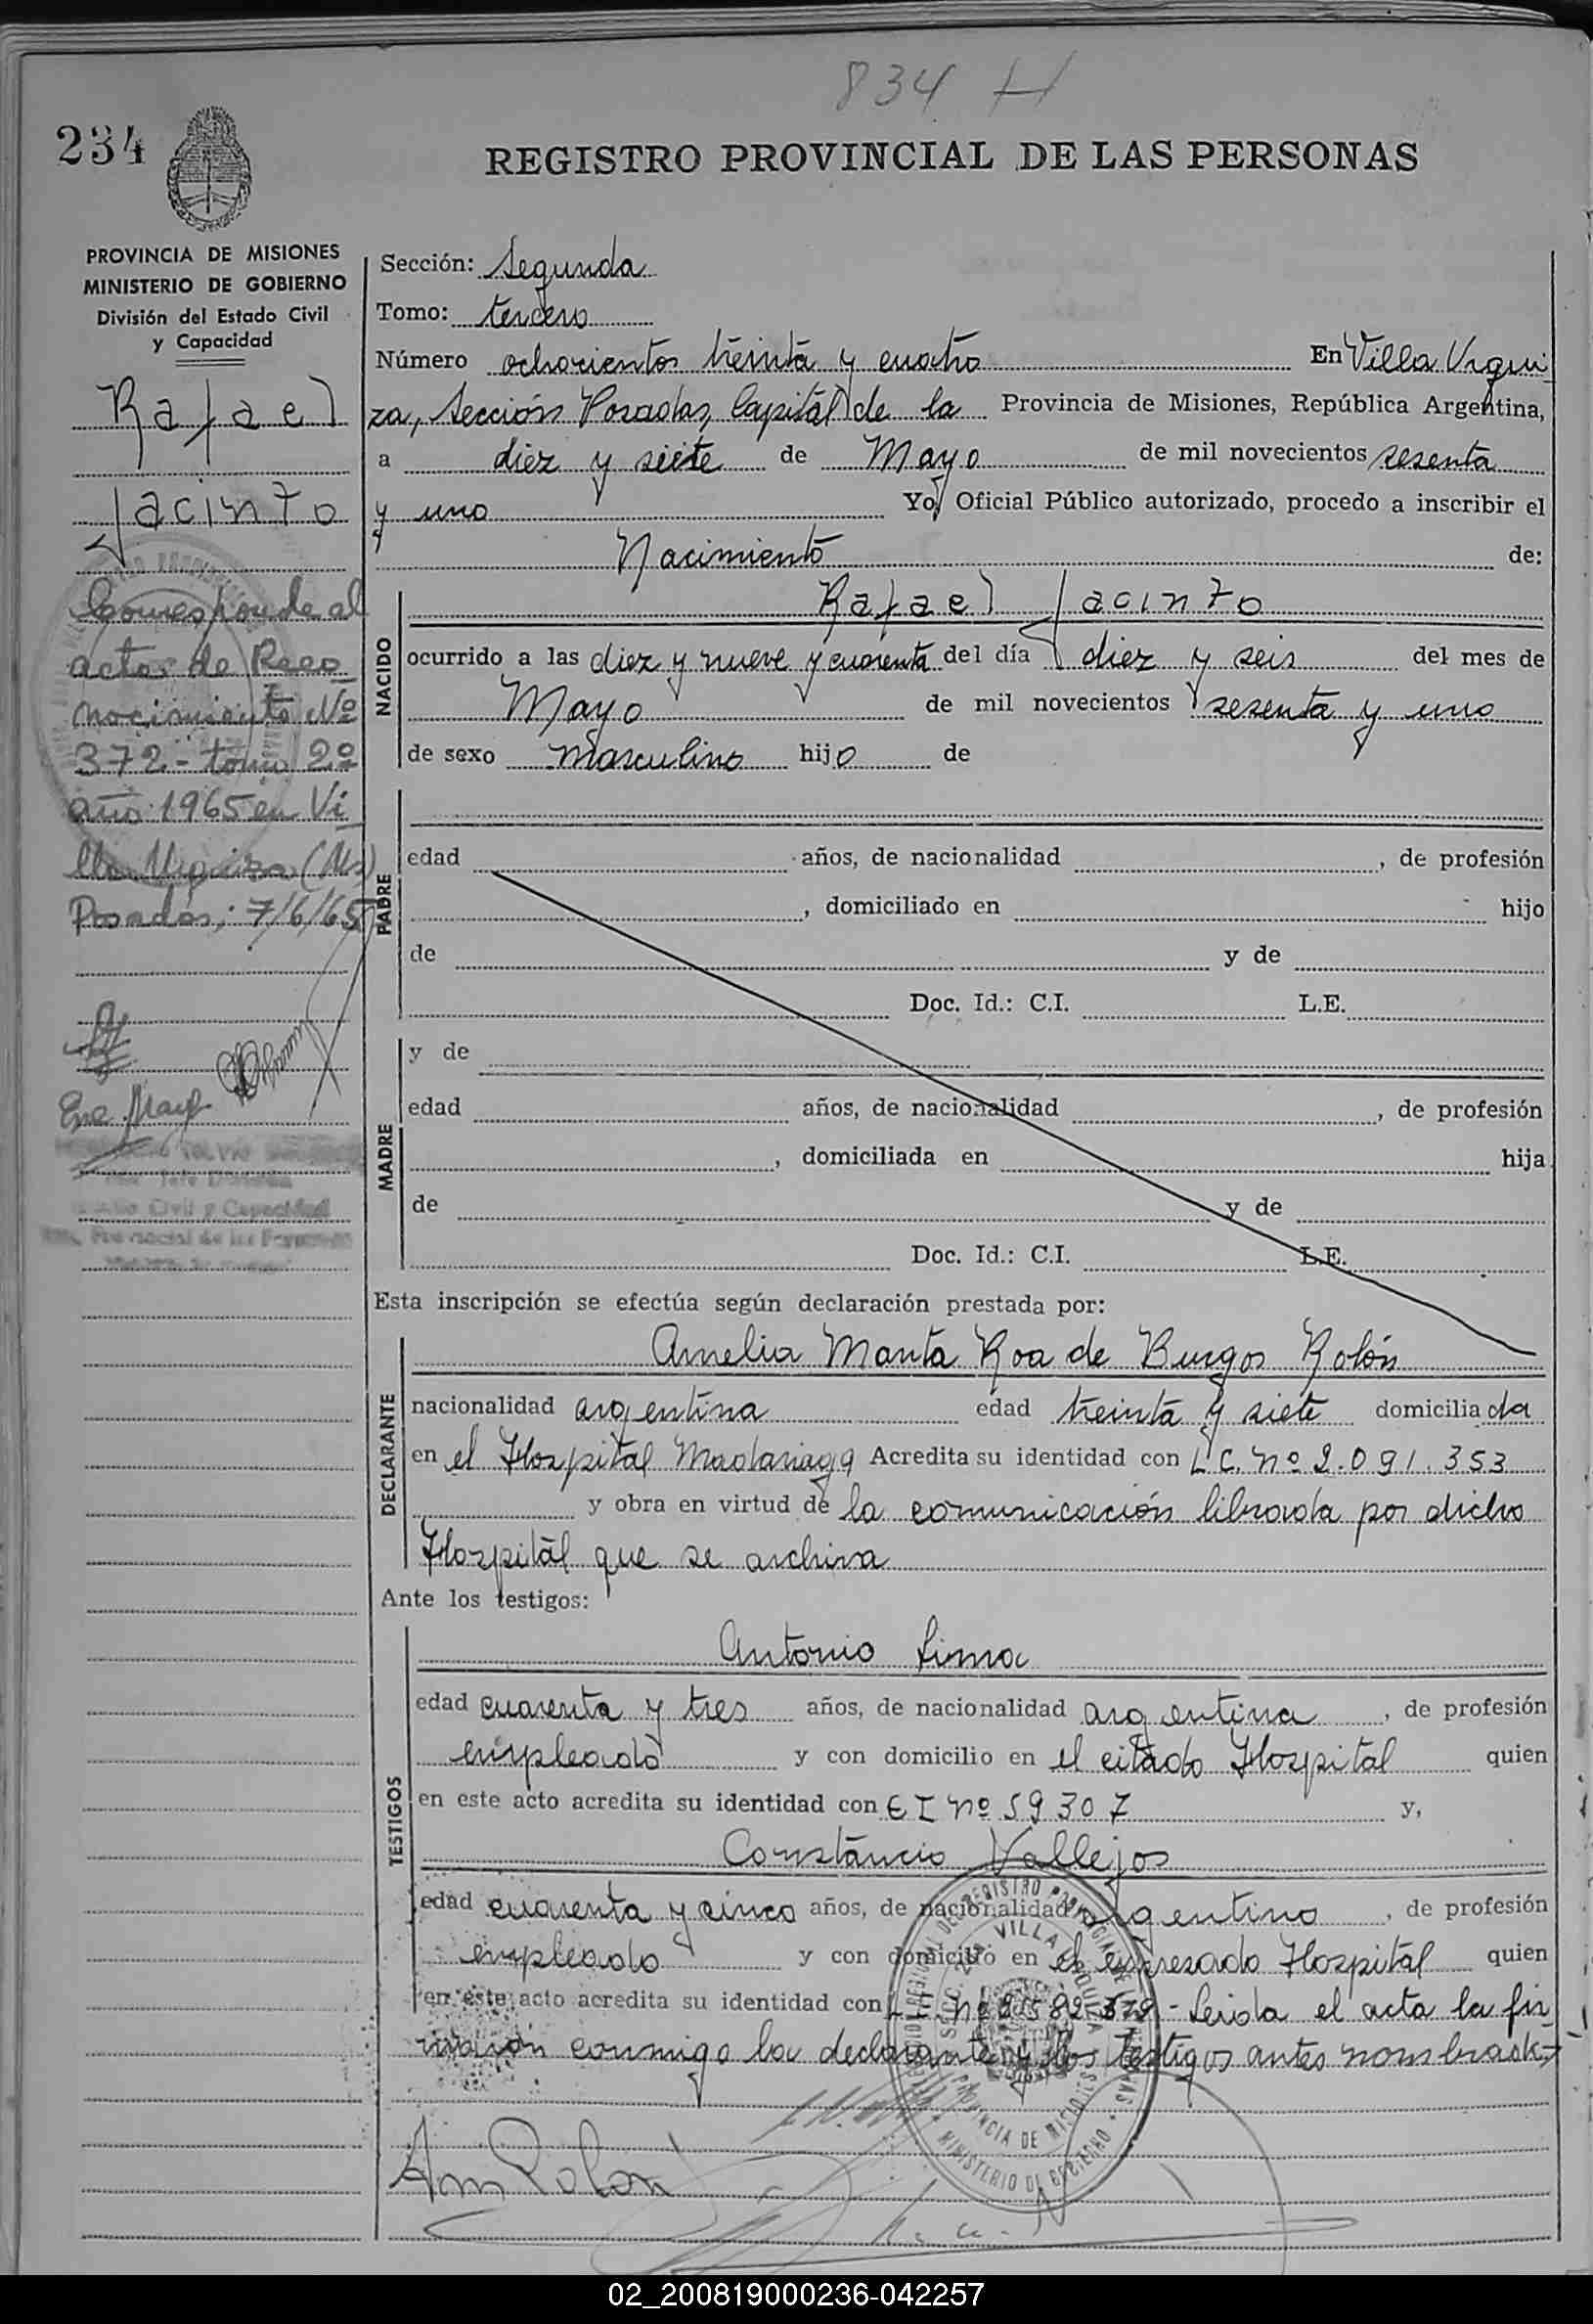 834 H
234
REGISTRO PROVINCIAL DE LAS PERSONAS
PROVINCIA DE MISIONES
MINISTERIO DE GOBIERNO
División del Estado Civil
y Capacidad
Rafael
Jacinto
Corresponde al
acta de Reco
nocimiento Nº
372 - tomo 2º
año 1965 en Vi
lla Urquiza (Ms)
Posadas; 7/6/65
Sección: Segunda
Tomo: tercero
Número ochocientos treinta y cuatro En Villa Urqui
za, Sección Posadas, Capital de la Provincia de Misiones, República Argentina,
a diez y siete de Mayo de mil novecientos sesenta
y uno Yo, Oficial Público autorizado, procedo a inscribir el
Nacimiento de:
NACIDO
Rafael Jacinto
ocurrido a las diez y nueve y cuarenta del día diez y seis del mes de
Mayo de mil novecientos sesenta y uno
de sexo Masculino hijo de
PADRE
edad años, de nacionalidad , de profesión
, domiciliado en hijo
de y de
Doc. Id.: C.I. L.E.
MADRE
y de
edad años, de nacionalidad , de profesión
, domiciliada en hija
de y de
Doc. Id.: C.I. L.E.
Esta inscripción se efectúa según declaración prestada por:
DECLARANTE
Amelia Manta Roa de Burgos Rolón
nacionalidad argentina edad treinta y siete domiciliada
en el Hospital Madariaga Acredita su identidad con L.C. nº 2.091.353
y obra en virtud de la comunicación librada por dicho
Hospital que se archiva
Ante los testigos:
TESTIGOS
Antonio Lima
edad cuarenta y tres años, de nacionalidad argentina , de profesión
empleado y con domicilio en el citado Hospital quien
en este acto acredita su identidad con C I nº 59307 y,
Constancio Vallejos
edad cuarenta y cinco años, de nacionalidad argentino , de profesión
empleado y con domicilio en el expresado Hospital quien
en este acto acredita su identidad con nº - Leida el acta la fir
maron conmigo la declarante y los testigos antes nombrados
Am Rolon
02_200819000236-042257